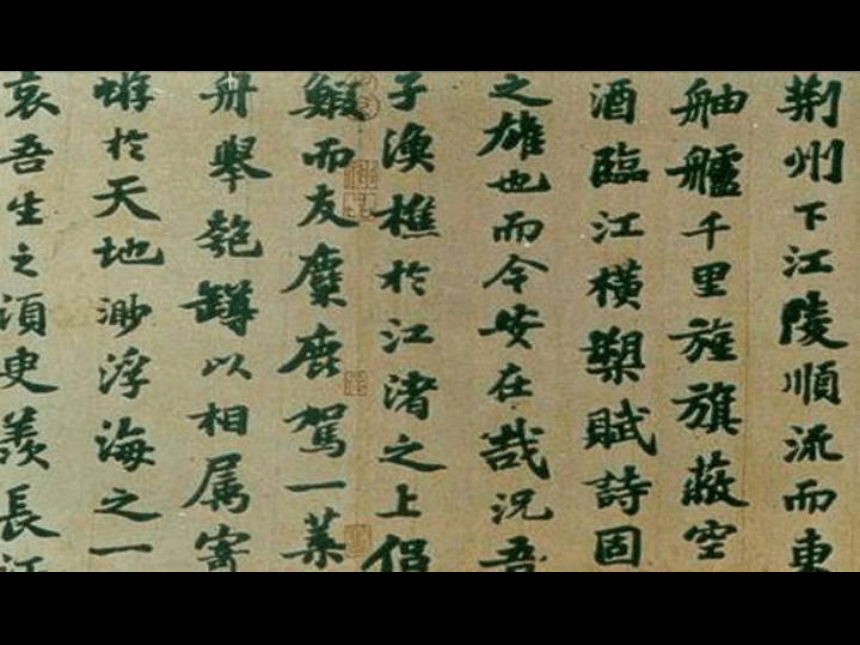 荊州下江陵順流而東
舳艫千里旌旗蔽空
酒臨江橫槊賦詩固
之雄也而今安在哉況吾
子漁樵於江渚之上侶
鰕而友麋鹿駕一葉
舟舉匏罇以相属寄
蝣於天地渺浮海之一
哀吾生之須臾羨長江